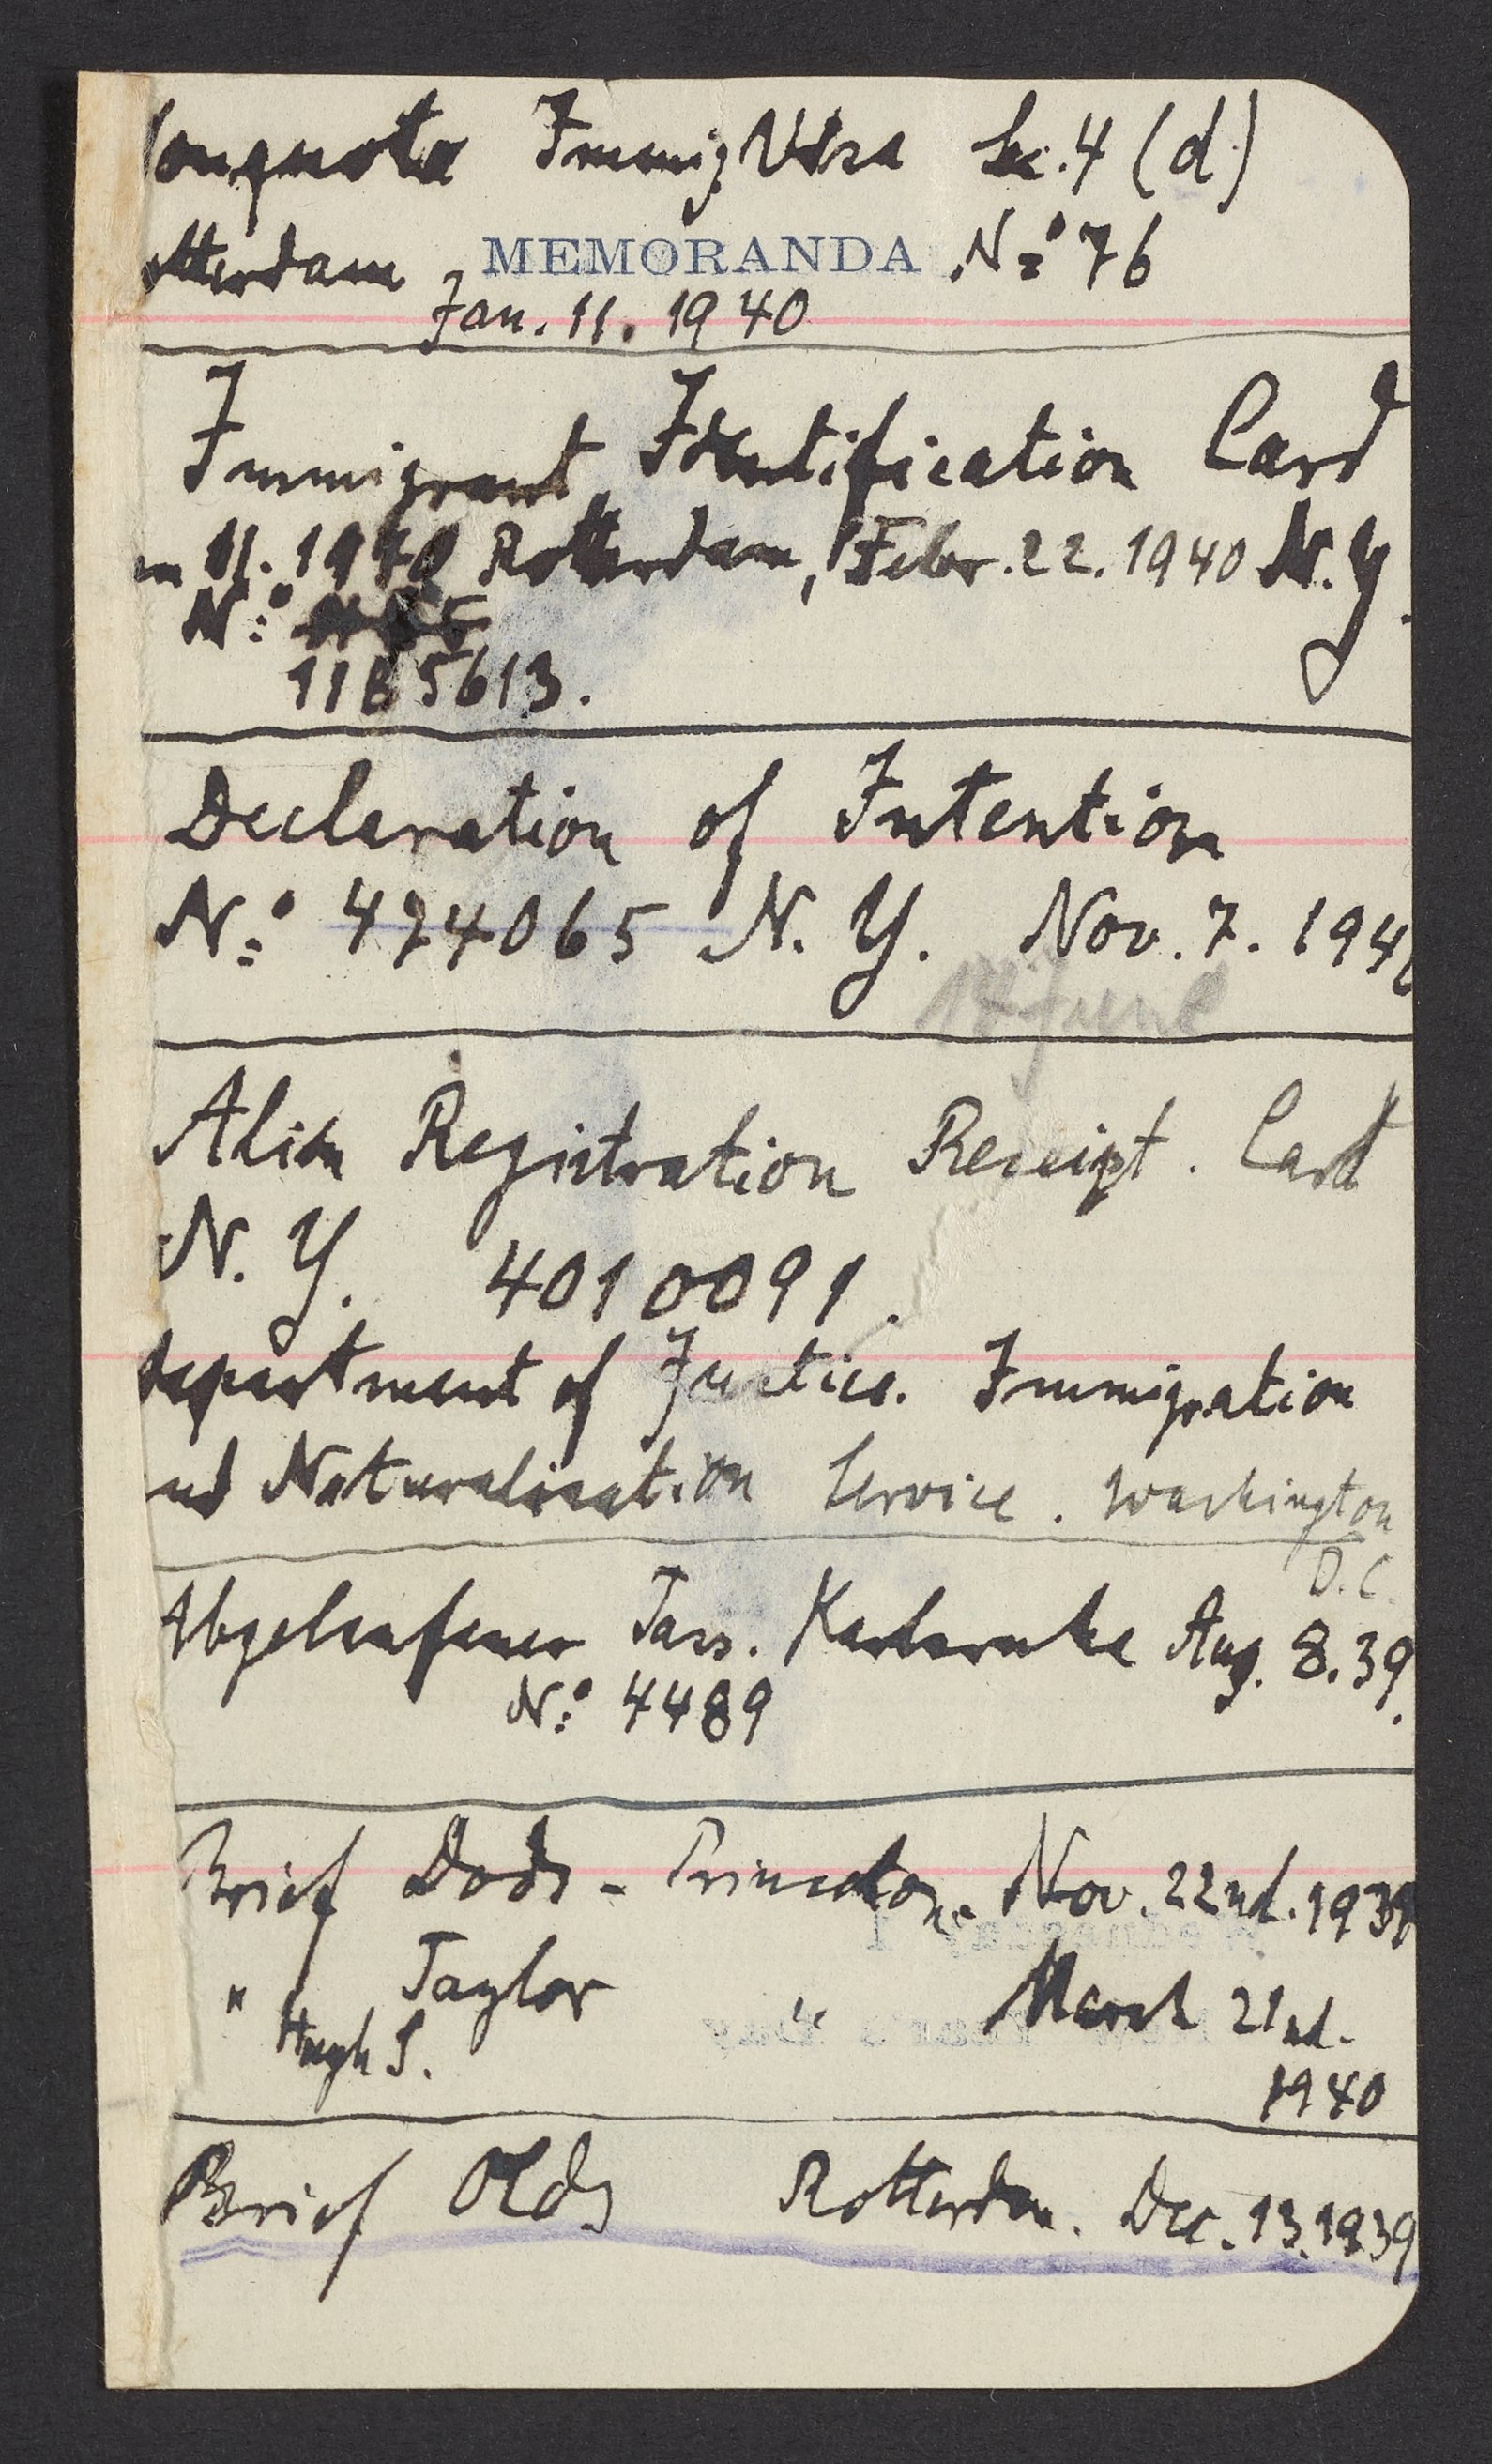 onquota Immig Visa Sec. 4 (d)
MEMORANDA
otterdam, Nº 76
Jan. 11. 1940
Immigrant Identification Card
an 11. 1940 Rotterdam, Febr. 22. 1940 N. Y.
Nº
1185613.
Declaration of Intention
Nº 474065 N. Y. Nov. 7. 194
June
Alien Registration Receipt. Card
N. Y. 4010091.
Department of Justice. Immigration
nd Naturalisation Service. Washington
D. C.
Abgelaufener Pass. Karlsruhe Aug. 8. 39.
Nº 4489
Brief Dods - Princeton. Nov. 22nd. 1939
" Taylor " March 21nd.
Hugh S.
1940
Brief Olds Rotterdam. Dec. 13. 1939